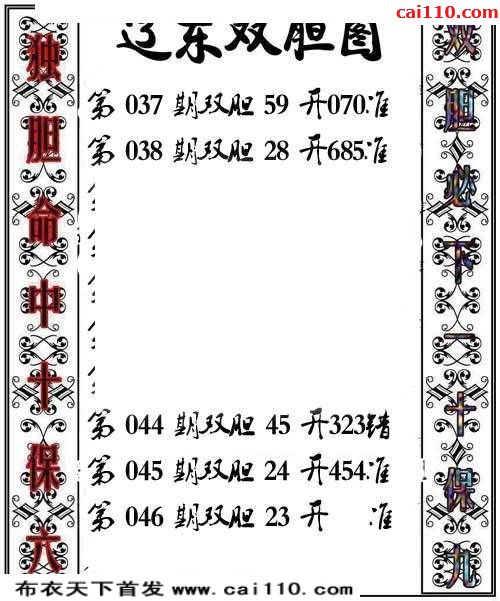 cai110.com
辽东双胆图
第 037 期双胆 59 开070准
第 038 期双胆 28 开685准
第 044 期双胆 45 开323错
第 045 期双胆 24 开454准
第 046 期双胆 23 开 准
独胆命中十保六
双胆必下一十保九
布衣天下首发 www.cai110.com